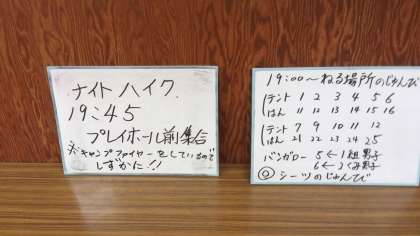 ナイトハイク
19:45
プレイホール前集合
※キャンプファイヤーをしているので
しずかに!!
19:00～ねる場所のじゅんび
テント 1 2 3 4 5 6
はん 11 12 13 14 15 16
テント 7 9 10 11 12
はん 21 22 23 24 25
バンガロー 5←1組男子
6←2くみ男子
◎シーツのじゅんび